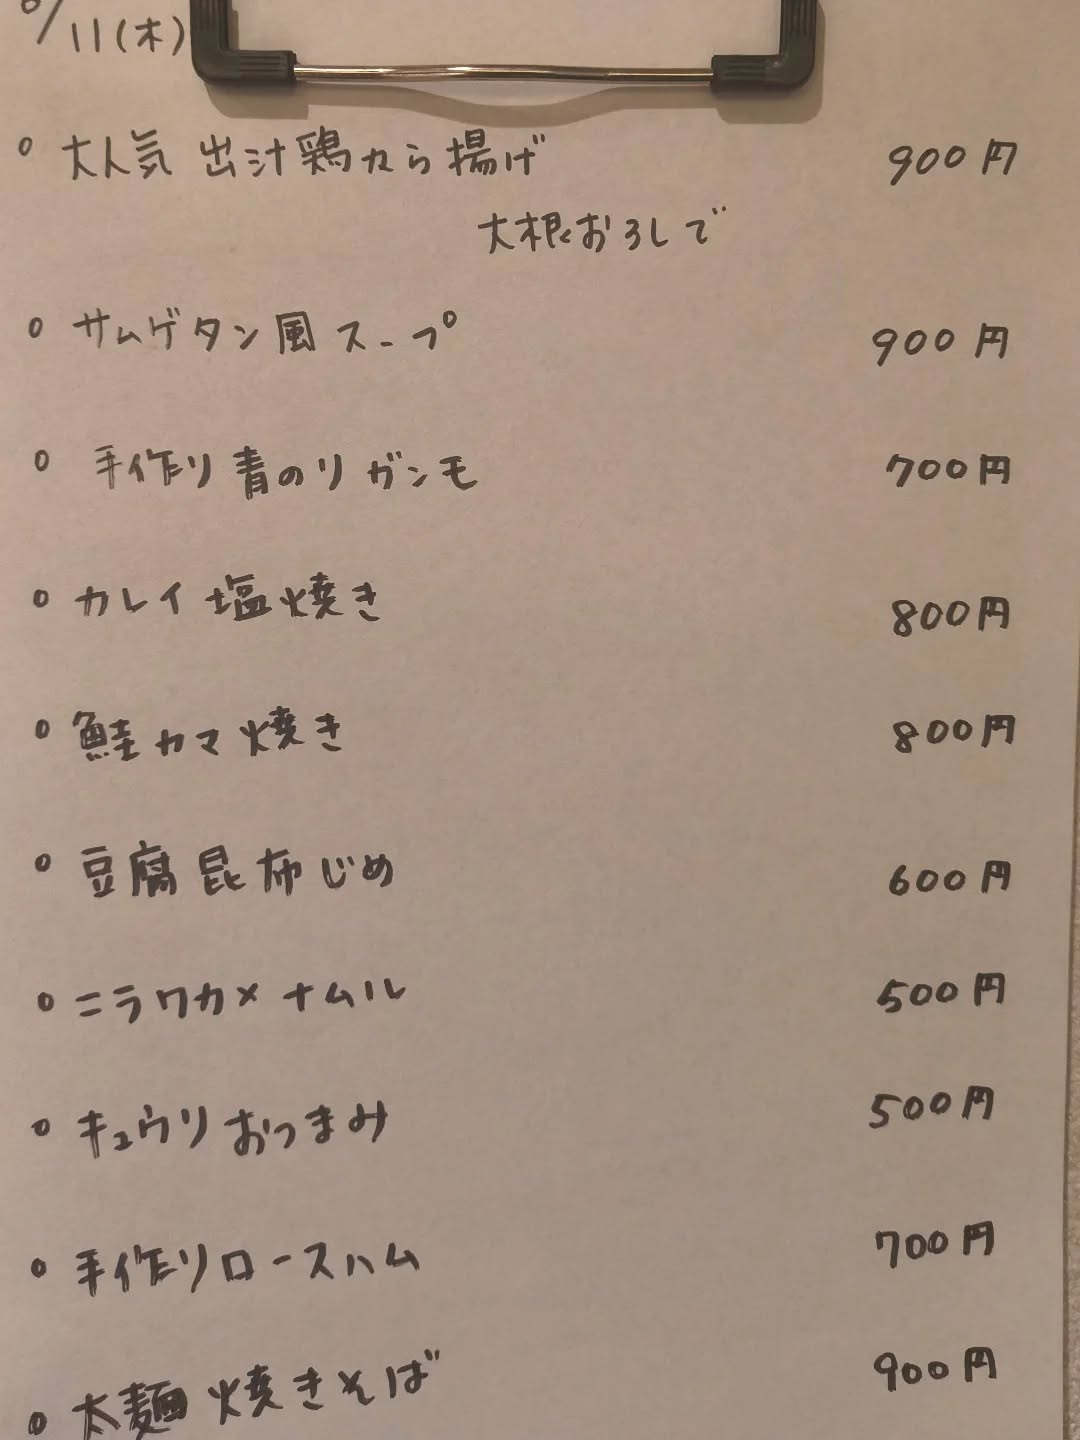 /11(木)
○ 大人気 出汁鶏から揚げ 900円
大根おろしで
○ サムゲタン風スープ 900円
○ 手作り青のりガンモ 700円
○ カレイ塩焼き 800円
○ 鮭カマ焼き 800円
○ 豆腐昆布じめ 600円
○ ニラワカメナムル 500円
○ キュウリおつまみ 500円
○ 手作りロースハム 700円
○ 太麺焼きそば 900円